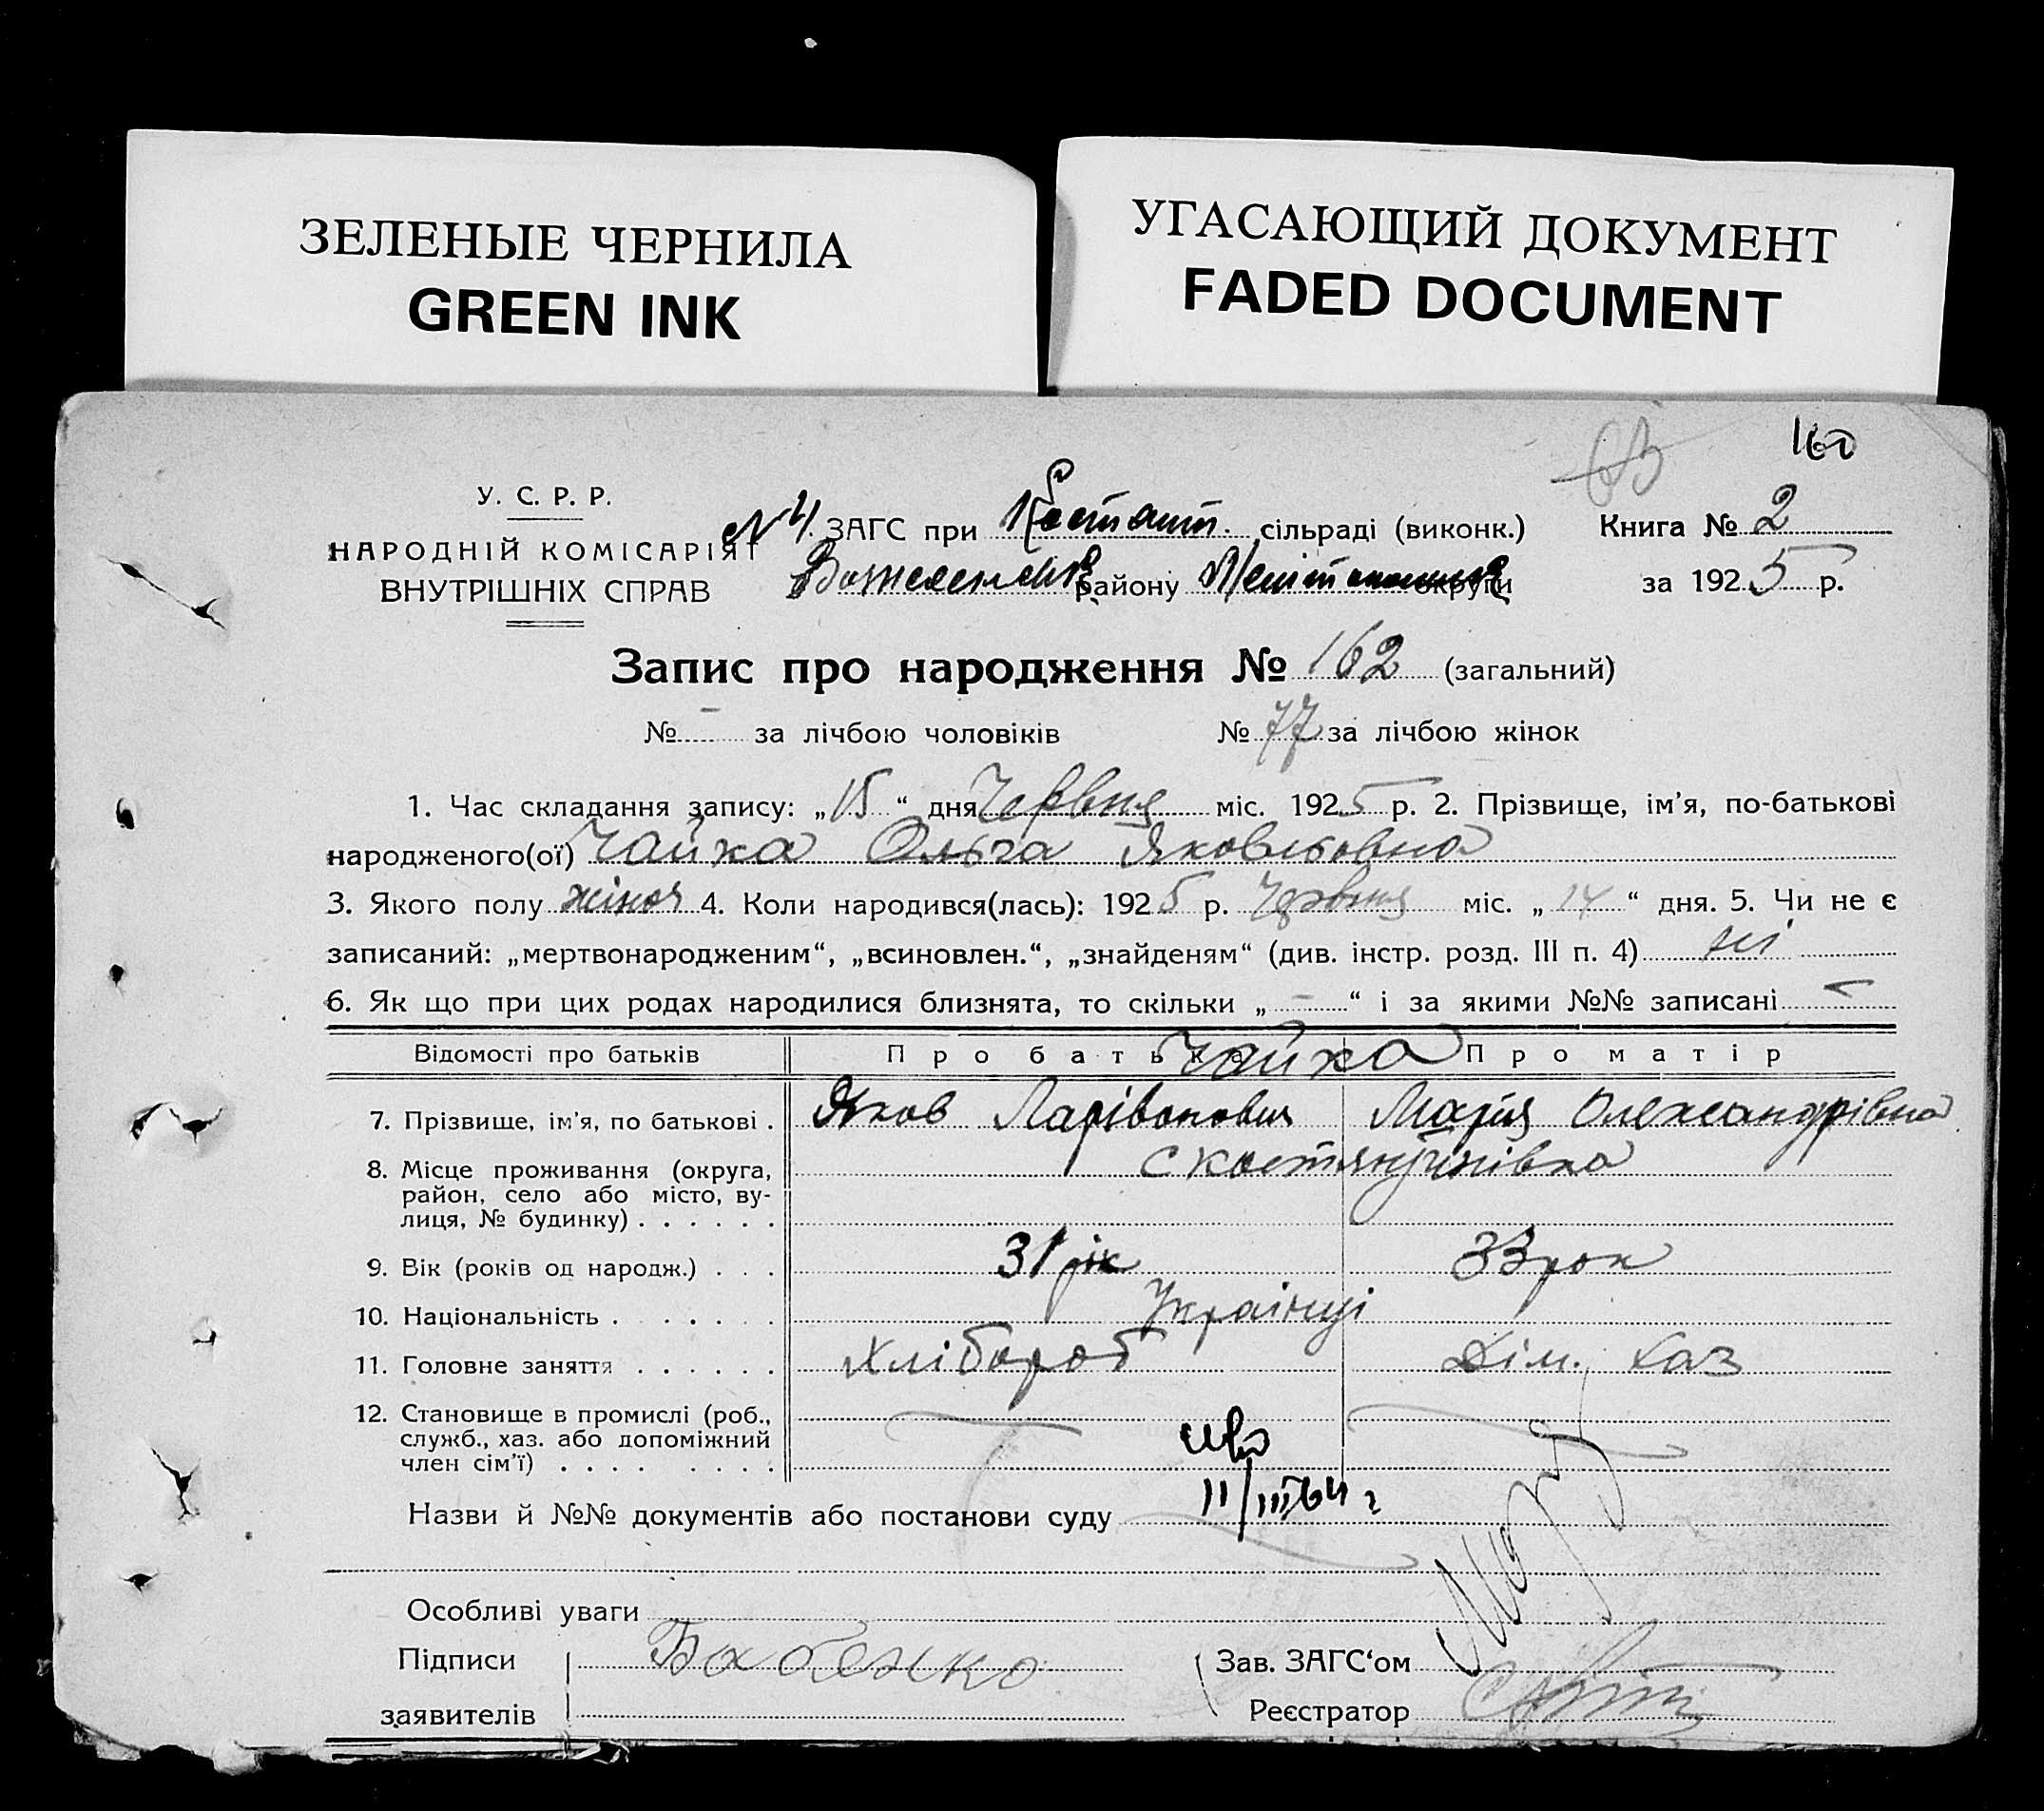 ЗЕЛЕНЫЕ ЧЕРНИЛА
GREEN INK
УГАСАЮЩИЙ ДОКУМЕНТ
FADED DOCUMENT
160
У. С. Р. Р.
НАРОДНІЙ КОМІСАРІЯТ
ВНУТРІШНІХ СПРАВ
№ 4 ЗАГС при Костянт. сільраді (виконк.) Книга № 2
району округи за 1925 р.
Запис про народження № 162 (загальний)
№ - за лічбою чоловіків № 77 за лічбою жінок
1. Час складання запису: „15“ дня Червня міс. 1925 р. 2. Прізвище, ім'я, по-батькові
народженого(ої) Чайка Ольга Яковлівна
3. Якого полу жіноч 4. Коли народився(лась): 1925 р. Червня міс. „14“ дня. 5. Чи не є
записаний: „мертвонародженим“, „всиновлен.“, „знайденям“ (див. інстр. розд. III п. 4) ні
6. Як що при цих родах народилися близнята, то скільки „-“ і за якими №№ записані -
Відомості про батьків Про батька Чайка Про матір
7. Прізвище, ім'я, по батькові . Яков Ларівонович Марія Олександрівна
8. Місце проживання (округа, с Костянтинівка
район, село або місто, ву-
лиця, № будинку) . . . . . .
9. Вік (років од народж.) . . . 31 рік 33 рок
10. Національність . . . . . . Українці
11. Головне заняття . . . . . . Хлібороб Дім. хаз
12. Становище в промислі (роб.,
служб., хаз. або допоміжний
член сім'ї) . . . . . . . .
Назви й №№ документів або постанови суду 11/III 64 г
Особливі уваги
Підписи Бабенко Зав. ЗАГС'ом
заявителів Реєстратор